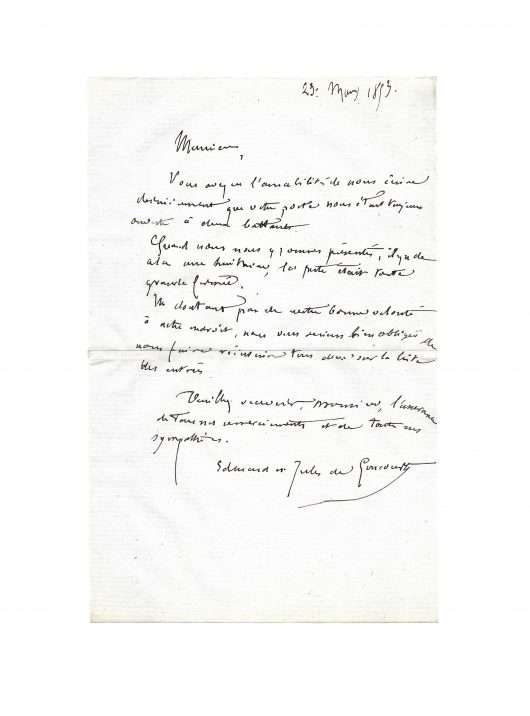 23 Mars 1853.
Monsieur,
Vous avez eu l'amabilité de nous écrire
dernièrement que votre porte nous était toujours
ouverte à deux battants.
Quand nous nous y sommes présentés, il y a de
cela une huitaine, la porte était toute
grande fermée.
Ne doutant pas de votre bonne volonté
à notre endroit, nous vous serions bien obligés de
nous faire réinscrire tous deux sur la liste
des entrées.
Veuillez recevoir, Monsieur, l'assurance
de tous nos remerciements et de toutes nos
sympathies.
Edmond et Jules de Goncourt